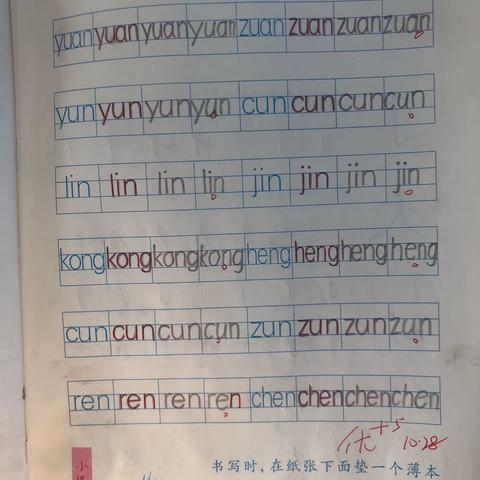 yuan yuan yuan yuan zuan zuan zuan zuan
yun yun yun yun cun cun cun cun
lin lin lin lin jin jin jin jin
kong kong kong kong heng heng heng heng
cun cun cun cun zun zun zun zun
ren ren ren ren chen chen chen chen
优+5 10.28
书写时,在纸张下面垫一个薄本
小